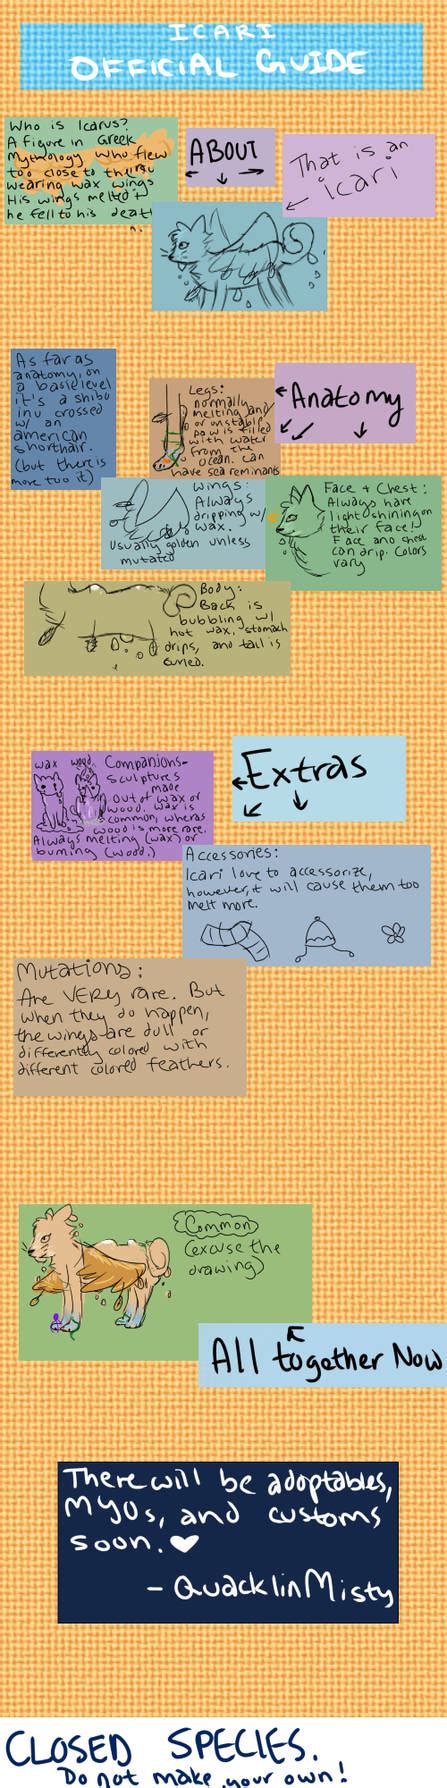 ICARI
OFFICIAL GUIDE
Who is Icarus?
A figure in Greek
Mythology who flew
too close to the sun
wearing wax wings
His wings melted +
he fell to his death
ABOUT
That is an
icari
As far as
anatomy, on
a basic level
it's a shiba
inu crossed
w/ an
american
shorthair.
(but there is
more too it)
Legs:
normally
melting and/
or unstable
paw is filled
with water
from the
ocean. can
have sea reminants
Anatomy
Wings:
Always
dripping w/
wax.
Usually golden unless
mutated
Face + Chest:
Always have
light shining on
their face!
Face and chest
can drip. Colors
vary
Body:
Back is
bubbling w/
hot wax, stomach
drips, and tail is
curled.
wax wood
Companions-
sculptures
made
out of wax or
wood. wax is
common, wheras
wood is more rare.
Always melting (wax) or
burning (wood.)
Extras
Accessories:
Icari love to accessorize,
however, it will cause them too
melt more.
Mutations:
Are VERY rare. But
when they do happen,
the wings are dull or
differently colored with
different colored feathers.
Common
(excuse the
drawing)
All together Now
There will be adoptables,
MYOs, and customs
soon. ♥
- QuacklinMisty
CLOSED SPECIES.
Do not make your own!